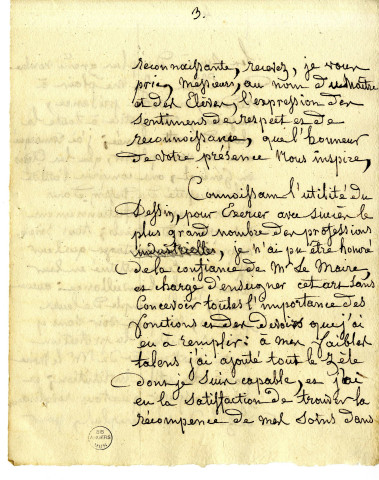 3.
reconnoissante, recevez, je vous
prie, Messieurs, au nom du maître
et des Elèves, l'expression des
sentimens de respect et de
reconnoissance, que l'honneur
de votre présence nous inspire,
Connoissant l'utilité du
Dessin, pour Exercer avec succès le
plus grand nombre des professions
industrielles, je n'ai pu être honoré
de la confiance de Mr Le Maire,
et chargé d'enseigner cet art sans
Concevoir toutes l'importance des
fonctions et des devoirs que j'ai
eu à remplir: à mes faibles
talens j'ai ajouté tout le zèle
dont je suis capable, et j'ai
eu la satisfaction de trouver la
récompence de mes soins dans